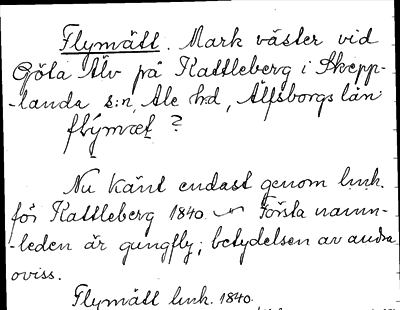 Flymått. Mark väster vid
Göta Älv på Kattleberg i Skepp-
-landa s:n, Ale hd, Älfsborgs län
flýmæt ?
Nu känt endast genom lmk.
för Kattleberg 1840. Första namn-
-leden är gungfly; betydelsen av andra
oviss.
Flymått lmk. 1840.